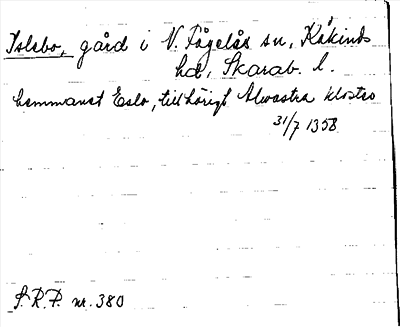 Islebo, gård i N. Fågelås sn, Kåkinds
hd, Skarab. l.
hemmanet Eslo, tillhörigt Alwastra kloster
31/7 1358
S.R.P. nr. 380